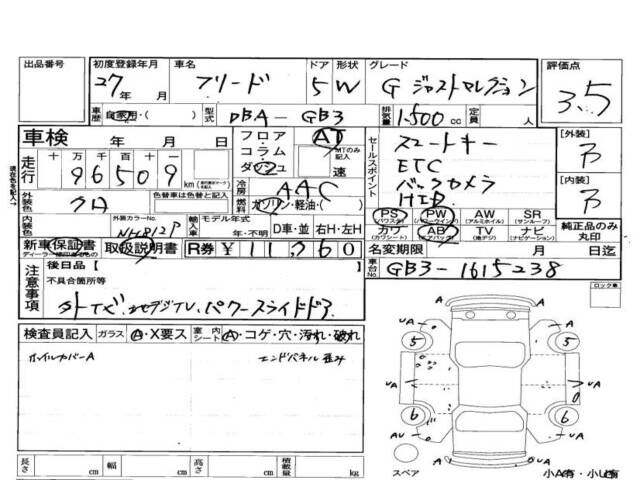 出品番号 初度登録年月 車名 ドア 形状 グレード 評価点
27年 月 フリード 5 W G ジャストセレクション 3.5
車歴 自家用・( ) 型式 DBA-GB3 排気量 1500cc 定員 人
車検 年 月 日 フロア・コラム・ダッシュ AT MTのみ記入 速
走行 十万千百十一 96509 km
セールスポイント スマートキー
ETC
バックカメラ
HID
[外装]
[内装]
外装色 クロ 色替車は色替と記入 冷房 AAC
燃料 ガソリン・軽油・( )
内装色 外装カラーNo. NH812P 輸入車 モデル年式 年・不明 D車・並 右H・左H
PS(パワステ) PW(パワーウインド) AW(アルミホイル) SR(サンルーフ)
カワ(カワシート) AB(エアバック) TV(地デジ) ナビ(ナビゲーション) 純正品のみ丸印
新車保証書 取扱説明書 R券 ¥11,760 名変期限 月 日迄
ディーラー
現在色を記入
注意事項 後日品[ ] 車台No. GB3-1615238
不具合箇所等
外TVビ、地デジTV、パワースライドドア
ロック車
検査員記入 ガラス A・X要ス 室内シート A・コゲ・穴・汚れ・破れ
ホイルカバーA エンドパネル歪み
UA A UA
5 5
UA UA
6 6
AU A UA
長さ cm 幅 cm 高さ cm 積載量 kg
スペア 小A有・小U有